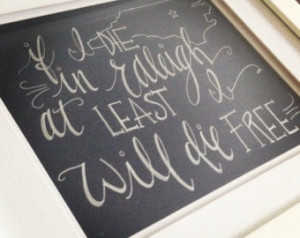 if I DIE
in raleigh
at LEAST I
will die FREE